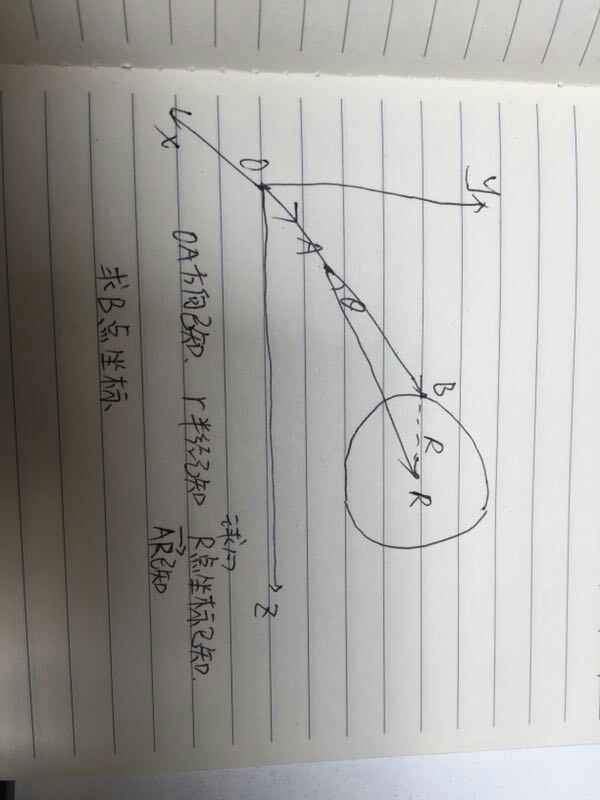 y
x
O
A
θ
B
R
R
z
OA方向已知、r半径已知 球心R点坐标已知.
AR已知
求B点坐标